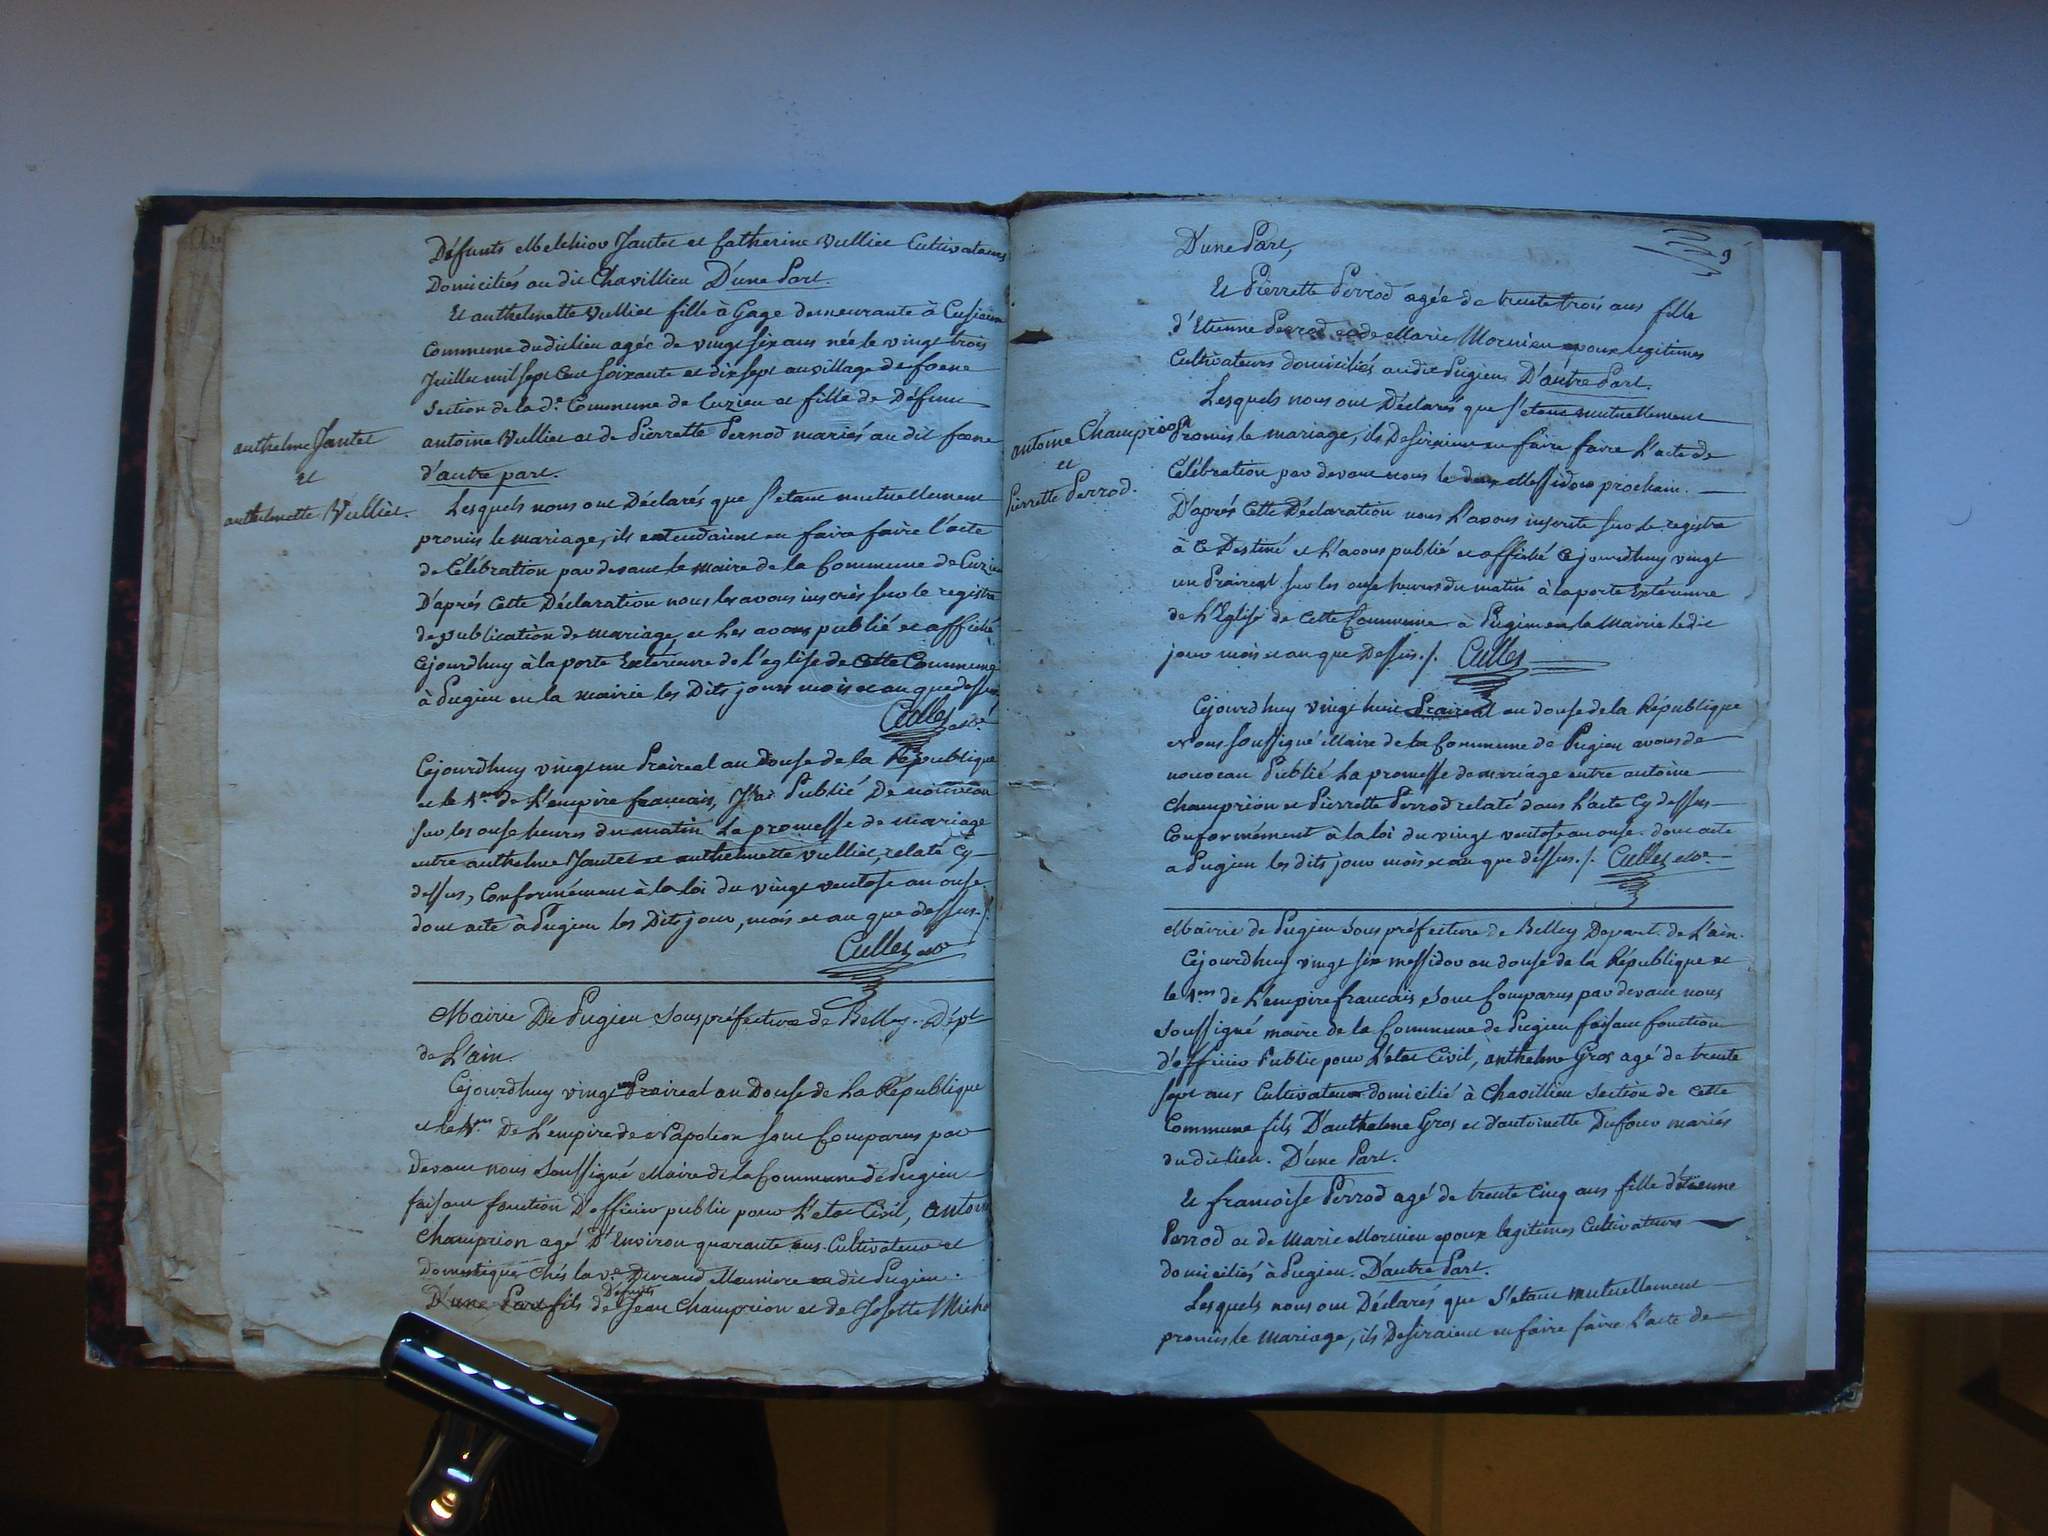 Défunts Melchior Jantet et Catherine Vulliet Cultivateurs
Domiciliés au dit Chavillieu D'une Part.
Et anthelmette Vulliet fille à Gage demeurante à Cusieu
Commune dudit lieu agée de vingt six ans née le vingt trois
Juillet mil sept Cent soixante et dix sept au village de
Section de la de Commune de Cuzieu et fille de Défunt
antoine Vulliet et de Pierrette Pernod mariés au dit
d'autre part.
anthelme Jantet
et
anthelmette Vulliet.
Lesquels nous ont Déclarés que s'etant mutuellement
promis le mariage, ils entendaient en faire faire l'acte
de Célébration par devant le maire de la Commune de Cuzieu
D'aprés Cette Déclaration nous les avons inscrés sur le registre
de publication de mariage, et Les avons publié et affiché
Cejourdhuy à la porte Extérieure de l'eglise de Cette Commune
à Pugieu en la mairie les Dits jour mois et an que dessus
Cullet
Cejourdhuy vingt un Praireal an Douse de la République
et le 1er de L'empire francais, J'ai Publié De nouveau
sur les onse heures du matin La promesse de mariage
entre anthelme Jantet et anthelmette Vulliet, relaté Cy
dessus, Conformément à la loi du vingt ventose an onse.
dont acte à Pugieu les Dits jour, mois et an que dessus./.
Cullet
Mairie De Pugieu Souspréfecture de Belley. Dépt
de L'ain.
Cejourdhuy vingt un Praireal an Douse de La République
et le 1er De L'empire de Napoléon sont Comparus par
Devant nous Soussigné Maire de la Commune de Pugieu
faisant fonction D'officier public pour L'etat Civil, antoine
Champrion agé D'Environ quarante ans Cultivateur et
Domestique Chés la ve Durand Meuniere au dit Pugieu.
D'une Part fils de Défunts Jean Champrion et de Josette Miche
9
D'une Part,
Et Pierrette Perrod agée de trente trois ans fille
d'Etienne Perrod et de Marie Mornieu epoux legitimes
Cultivateurs domiciliés au dit Pugieu D'autre Part.
antoine Champrion
et
Pierrette Perrod.
Lesquels nous ont Déclarés que s'etant mutuellement
Promis le mariage, ils Desiraient en faire faire L'acte de
Célébration par devant nous le deux Messidor prochain.
D'aprés Cette Déclaration nous L'avons inscrite sur le registre
à Ce Destiné et L'avons publié et affiché Cejourdhuy vingt
un Praireal sur les onse heures du matin à la porte Extérieure
de L'Eglise de Cette Commune à Pugieu en la Mairie le dit
jour mois et an que Dessus./. Cullet
Cejourdhuy vingt huit Praireal an douse de la République
Nous soussigné Maire de la Commune de Pugieu avons de
nouveau Publié La promesse de mariage entre antoine
Champrion et Pierrette Perrod relaté dans L'acte Cy dessus
Conformément à la loi du vingt ventose an onse. dont acte
a Pugieu les dits jour mois et an que dessus./. Cullet
Mairie de Pugieu Sous préfecture de Belley Depart. de L'ain.
Cejourdhuy vingt six messidor an douse de la République et
le 1er de L'empire francais Sont Comparus par devant nous
Soussigné maire de la Commune de Pugieu faisant fonction
d'officier Public pour L'etat Civil, anthelme Gros agé de trente
sept ans Cultivateur domicilié à Chavillieu Section de Cette
Commune fils D'anthelme Gros et d'antoinette Dufour mariés
du dit lieu. D'une Part.
Et francoise Perrod agé de trente Cinq ans fille d'étienne
Perrod et de Marie Mornieu epoux legitimes Cultivateurs
domiciliés à Pugieu. D'autre Part.
Lesquels nous ont Déclarés que S'etant mutuellement
promis le mariage, ils Desiraient en faire faire L'acte de